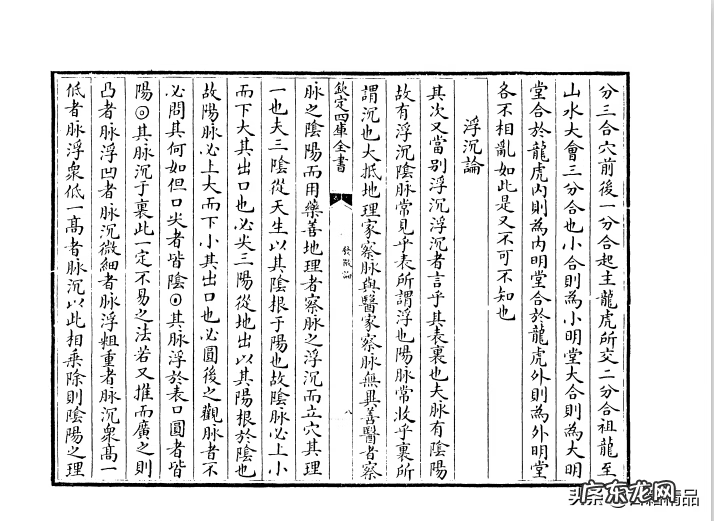 分三合穴前後一分合起主龍虎所交二分合祖龍至
山水大會三分合也小合則為小明堂大合則為大明
堂合於龍虎内則為内明堂合於龍虎外則為外明堂
各不相亂如此是又不可不知也
浮沉論
其次又當別浮沉浮沉者言乎其表裏也夫脉有陰陽
故有浮沉陰脉常見乎表所謂浮也陽脉常收乎裏所
謂沉也大抵地理家察脉與醫家察脉無異善醫者察
欽定四庫全書
發微論
八
脉之陰陽而用藥善地理者察脉之浮沉而立穴其理
一也夫三陰從天生以其陰根于陽也故陰脉必上小
而下大其出口也必尖三陽從地出以其陽根於陰也
故陽脉必上大而下小其出口也必圓後之觀脉者不
必問其何如但口尖者皆陰⊙其脉浮於表口圓者皆
陽⊙其脉沉于裏此一定不易之法若又推而廣之則
凸者脉浮凹者脉沉微細者脉浮粗重者脉沉衆髙一
低者脉浮衆低一髙者脉沉以此相乘除則陰陽之理
头条
字东龙网
精品